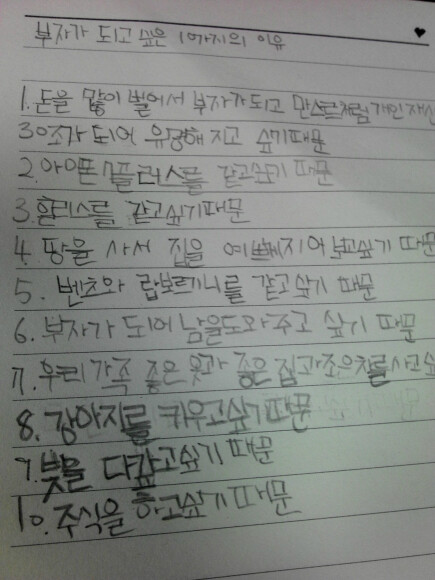 부자가 되고 싶은 10가지의 이유
1. 돈을 많이 벌어서 부자가 되고 만수르처럼 개인재산
30조가 되어 유명해지고 싶기때문
2. 아이폰 7플러스를 갖고싶기 때문
3. 힐리스를 갖고싶기때문
4. 땅을 사서 집을 예쁘게지어보고싶기 때문
5. 벤츠와 람보르기니를 갖고싶기 때문
6. 부자가 되어 남을도와주고 싶기 때문
7. 우리 가족 좋은 옷과 좋은 집과 조은차를사고싶
8. 강아지를 키우고싶기때문
9. 빚을 다갚고싶기 때문
10. 주식을 하고싶기때문